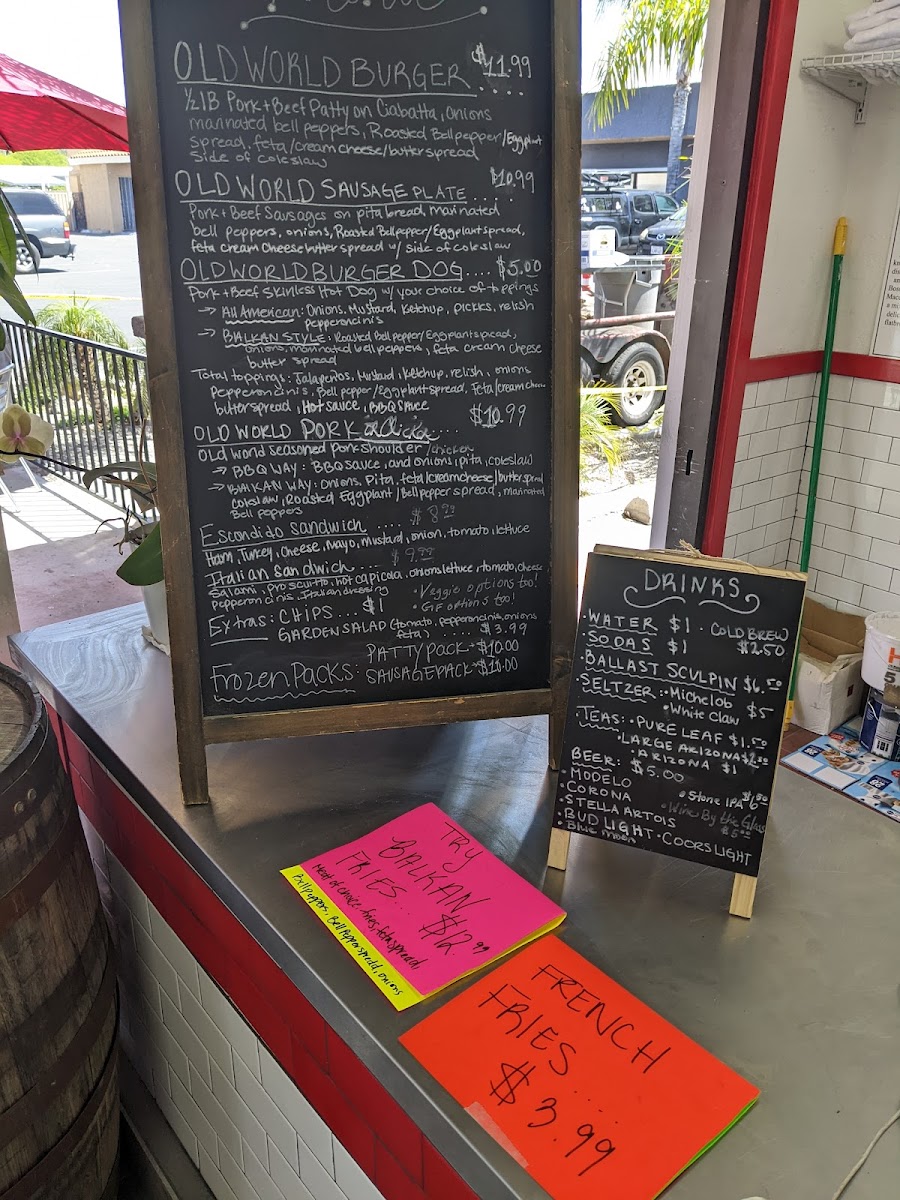 OLD WORLD BURGER $11.99
½ lB Pork+Beef Patty on Ciabatta, onions
marinated bell peppers, Roasted Bell pepper/Eggplant
spread, feta/cream cheese/butter spread
side of coleslaw
OLD WORLD SAUSAGE PLATE ..... $10.99
Pork+Beef Sausages on pita bread, marinated
bell peppers, onions, Roasted Bell pepper/Eggplant spread,
feta cream cheese butter spread w/ side of coleslaw
OLD WORLD BURGER DOG .... $5.00
Pork+Beef Skinless Hot Dog w/ your choice of toppings
→ All American: Onions, Mustard, Ketchup, pickles, relish
pepperoncinis
→ BALKAN STYLE: Roasted Bell pepper/Eggplant spread,
onions, marinated bell peppers, feta cream cheese
butter spread
Total toppings: Jalapeños, Mustard, Ketchup, relish, onions
Pepperoncinis, Bell pepper/Eggplant spread, feta/cream cheese
butter spread, Hot sauce, BBQ sauce
OLD WORLD PORK .... $10.99
Old world seasoned pork shoulder/chicken
→ BBQ WAY: BBQ sauce, and onions, pita, coleslaw
→ BALKAN WAY: Onions, Pita, feta/creamcheese/butter spread
coleslaw, Roasted Eggplant/Bell pepper spread, marinated
Bell peppers
Escondido sandwich .... $8.99
Ham, Turkey, Cheese, Mayo, mustard, onion, tomato, lettuce
Italian sandwich .... $9.99
Salami, prosciutto, hot capicola, onions lettuce, tomato, cheese
pepperoncinis, Italian dressing
• Veggie options too!
• GF options too!
Extras: CHIPS... $1
GARDEN SALAD (tomato, pepperoncinis, onions
feta) .... $3.99
Frozen Packs: PATTY PACK - $10.00
SAUSAGE PACK - $10.00
DRINKS
• WATER $1 • COLD BREW
• SODAS $1 $2.50
• BALLAST SCULPIN $6.50
SELTZER: • Michelob
• White Claw $5
TEAS: • PURE LEAF $1.50
• LARGE ARIZONA
• ARIZONA $1
BEER: $5.00
• MODELO
• CORONA
• STELLA ARTOIS
• BUD LIGHT • COORS LIGHT
• Blue Moon
• Stone IPA
• Wine By the Glass
$5.00
TRY
BALKAN
FRIES... $12.99
Meat of choice, fries, feta spread,
Bell peppers, Bell Pepper spread, onions
FRENCH
FRIES....
$3.99